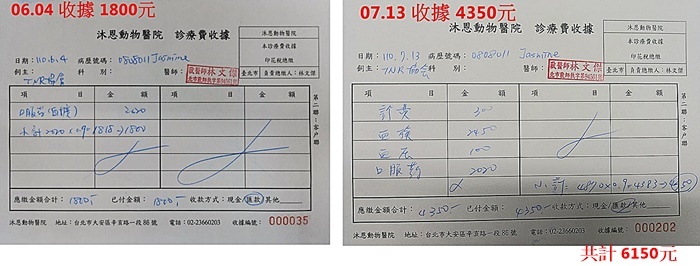 06.04 收據 1800元
沐恩動物醫院 診療費收據
沐恩動物醫院
本診療費收據
印花稅總繳
臺北市 負責總繳人:林文傑
日期:110.6.4 病歷號碼:0808011 Jasmine
飼主:TNR協會 科別: 醫師:獸醫師林文傑
項目 金額 項目 金額
口服藥 2020
小計2020×0.9=1818→1800
第二聯:客戶聯
應繳金額合計:1800.- 已付金額:1800.- 收款方式:現金/匯款/其他
沐恩動物醫院 地址:台北市大安區辛亥路一段86號 電話:02-23660203 收據編號:000035
07.13 收據 4350元
沐恩動物醫院 診療費收據
沐恩動物醫院
本診療費收據
印花稅總繳
臺北市 負責總繳人:林文傑
日期:110.7.13 病歷號碼:0808011 Jasmine
飼主:TNR協會 科別: 醫師:獸醫師林文傑
項目 金額 項目 金額
診費 300
血檢 2450
血壓 100
口服藥 2020
小計:4870×0.9=4383→4350
第二聯:客戶聯
應繳金額合計:4350.- 已付金額:4350.- 收款方式:現金/匯款/其他
沐恩動物醫院 地址:台北市大安區辛亥路一段86號 電話:02-23660203 收據編號:000202
共計 6150元